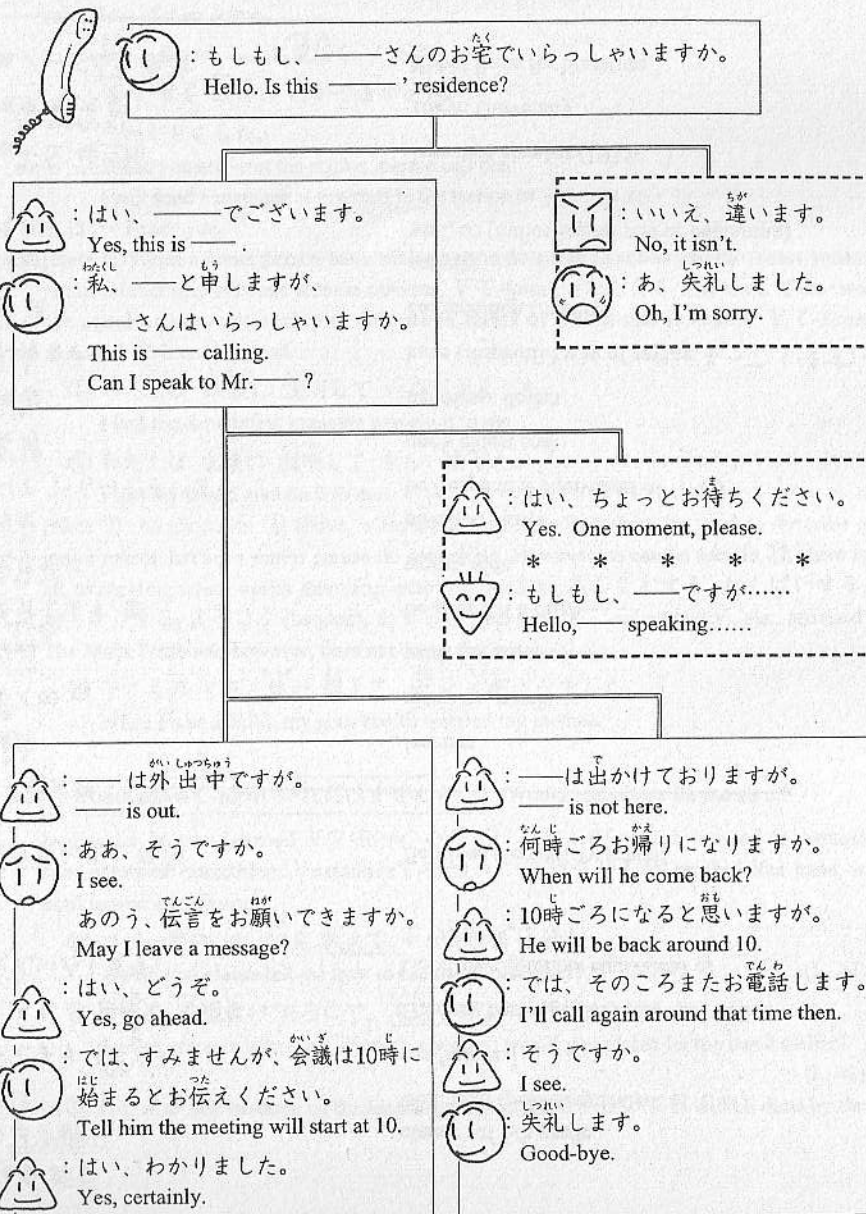 ：もしもし、――さんのお宅でいらっしゃいますか。
Hello. Is this ――' residence?
：はい、――でございます。
Yes, this is ――.
：私、――と申しますが、
――さんはいらっしゃいますか。
This is ―― calling.
Can I speak to Mr.――?
：いいえ、違います。
No, it isn't.
：あ、失礼しました。
Oh, I'm sorry.
：はい、ちょっとお待ちください。
Yes. One moment, please.
* * * * *
：もしもし、――ですが……
Hello, ―― speaking……
：――は外出中ですが。
―― is out.
：ああ、そうですか。
I see.
あのう、伝言をお願いできますか。
May I leave a message?
：はい、どうぞ。
Yes, go ahead.
：では、すみませんが、会議は10時に
始まるとお伝えください。
Tell him the meeting will start at 10.
：はい、わかりました。
Yes, certainly.
：――は出かけておりますが。
―― is not here.
：何時ごろお帰りになりますか。
When will he come back?
：10時ごろになると思いますが。
He will be back around 10.
：では、そのころまたお電話します。
I'll call again around that time then.
：そうですか。
I see.
：失礼します。
Good-bye.